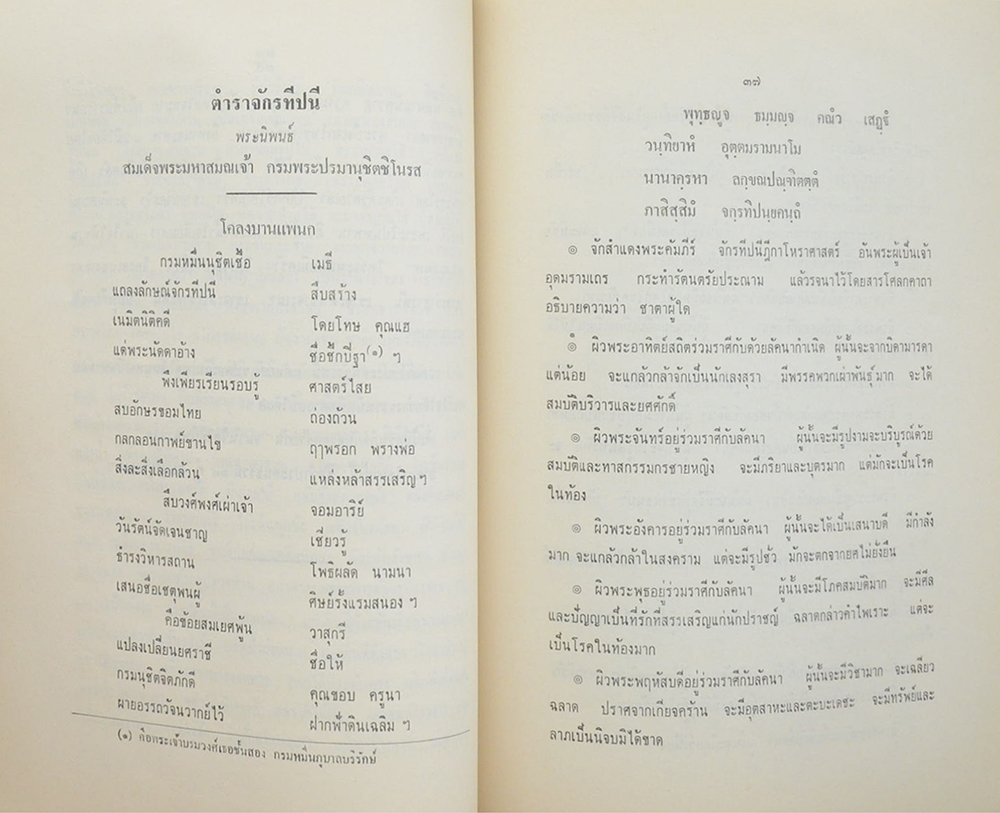 ตำราจักรทีปนี
พระนิพนธ์
สมเด็จพระมหาสมณเจ้า กรมพระปรมานุชิตชิโนรส
โคลงบานแพนก
กรมหมื่นนุชิตเชื้อ เมธี
แถลงลักษณ์จักรทีปนี สืบสร้าง
เนมิตนิติคดี โดยโทษ คุณแฮ
แด่พระนัดดาอ้าง ชื่อชี้กปีฐา(๑) ฯ
พึงเพียรเรียนรอบรู้ ศาสตร์ไสย
สบอักษรขอมไทย ถ่องถ้วน
กลกลอนกาพย์ขานไข ฤๅพร้อก พร้างพ่อ
สิ่งละสิ่งเลือกล้วน แหล่งหล้าสรรเสริญฯ
สืบวงศ์พงศ์เผ่าเจ้า จอมอาริย์
วันรัตน์จัดเจนชาญ เชี่ยวรู้
ธำรงวิหารสถาน โพธิผลัด นามนา
เสนอชื่อเชตุพนผู้ ศิษย์รั้งแรมสนอง ฯ
คือข้อยสมเยศพู้น วาสุกรี
แปลงเปลี่ยนยศราชี ชื่อให้
กรมนุชิตจิตภักดี คุณขอบ ครูนา
ผายอรรถวัจนวากย์ไว้ ฝากฟ้าดินเฉลิม ฯ
(๑) คือพระเจ้าบรมวงศ์เธอชั้นสอง กรมหมื่นภูบาลบริรักษ์
๓๗
พุทฺธญฺจ ธมฺมญฺจ คณํว เสฏฺฐํ
วนฺทิยาหํ อุตฺตมรามนาโม
นานาคฺรหา ลกฺขณปณฺฑิตตฺตํ
ภาสิสฺสิมํ จกฺรทิปนฺยคนฺถํ
๏ จักสำแดงพระคัมภีร์ จักรทีปนีฎีกาโหราศาสตร์ อันพระผู้เป็นเจ้า
อุดมรามเถร กระทำรัตนตรัยประณาม แล้วรจนาไว้โดยสารโศลกคาถา
อธิบายความว่า ชาตาผู้ใด
๏ ผิวพระอาทิตย์สถิตร่วมราศีกับด้วยลัคนากำเนิด ผู้นั้นจะจากบิดามารดา
แต่น้อย จะแกล้วกล้าจักเป็นนักเลงสุรา มีพรรคพวกเผ่าพันธุ์มาก จะได้
สมบัติบริวารและยศศักดิ์
๏ ผิวพระจันทร์อยู่ร่วมราศีกับลัคนา ผู้นั้นจะมีรูปงามจะบริบูรณ์ด้วย
สมบัติและทาสกรรมกรชายหญิง จะมีภริยาและบุตรมาก แต่มักจะเป็นโรค
ในท้อง
๏ ผิวพระอังคารอยู่ร่วมราศีกับลัคนา ผู้นั้นจะได้เป็นเสนาบดี มีกำลัง
มาก จะแกล้วกล้าในสงคราม แต่จะมีรูปชั่ว มักจะตกจากยศไม่ยั่งยืน
๏ ผิวพระพุธอยู่ร่วมราศีกับลัคนา ผู้นั้นจะมีโภคสมบัติมาก จะมีศีล
และปัญญาเป็นที่รักที่สรรเสริญแก่นักปราชญ์ ฉลาดกล่าวคำไพเราะ แต่จะ
เป็นโรคในท้องมาก
๏ ผิวพระพฤหัสบดีอยู่ร่วมราศีกับลัคนา ผู้นั้นจะมีวิชามาก จะเฉลียว
ฉลาด ปราศจากเกียจคร้าน จะมีอุตสาหะและตะบะเดชะ จะมีทรัพย์และ
ลาภเป็นนิจบมิได้ขาด